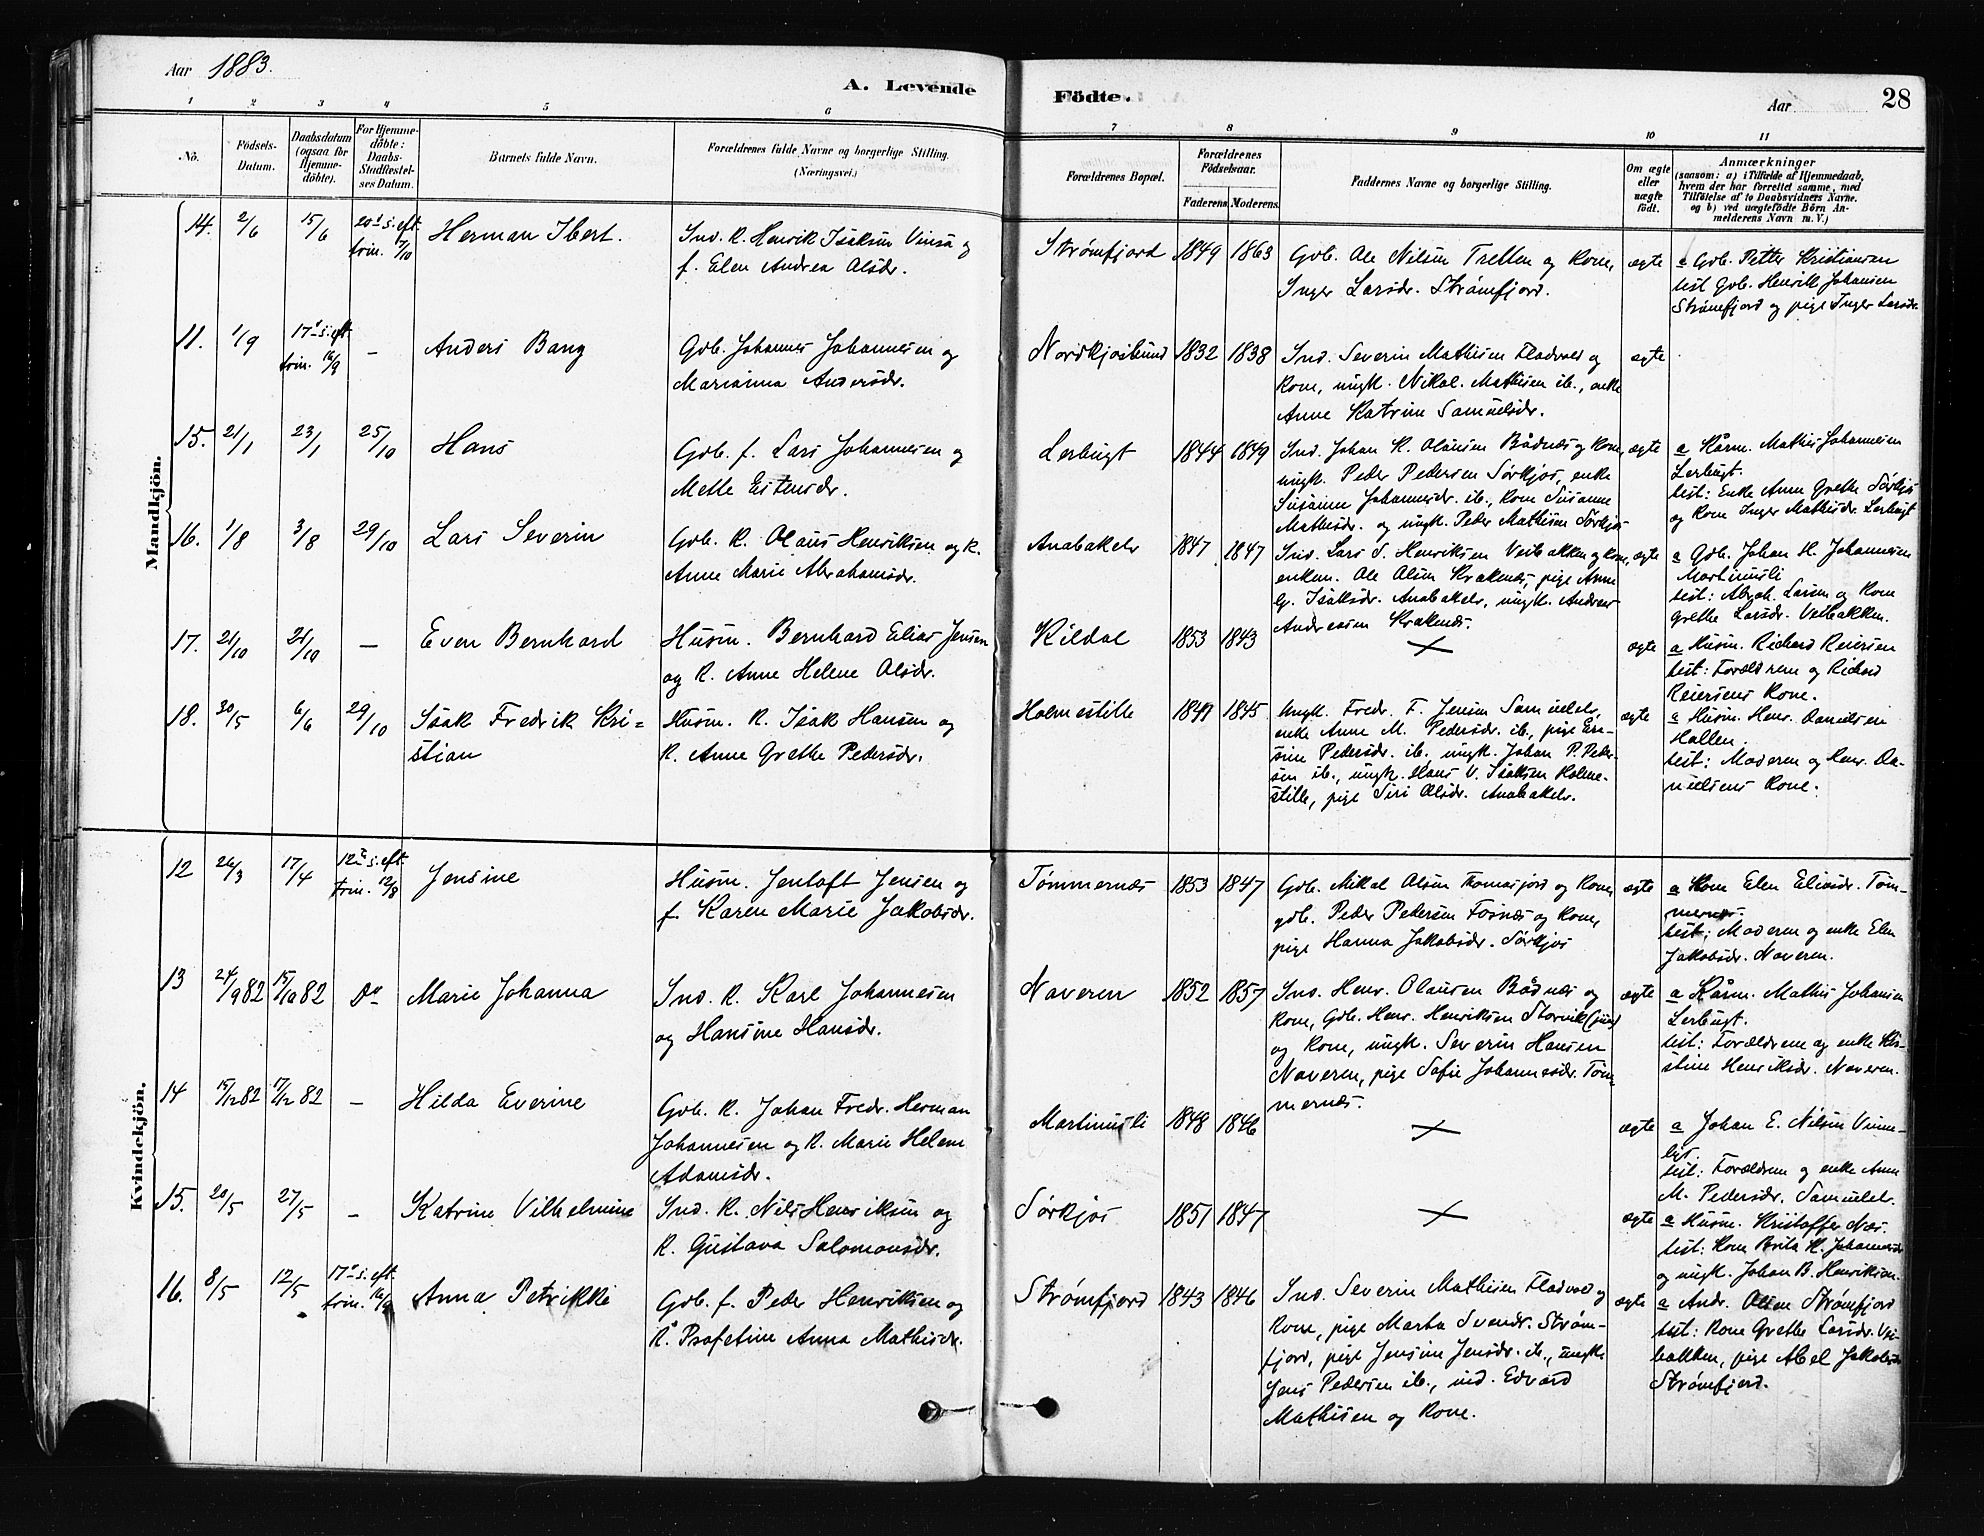 Aar 1883.
A. Levende
Födte.
Aar
28
1 2 3 4 5 6 7 8 9 10 11
No.
Födsels-Datum.
Daabsdatum (ogsaa for Hjemme-döbte).
For Hjemme-döbte: Daabs-Stadfæstelses Datum.
Barnets fulde Navn.
Forældrenes fulde Navne og borgerlige Stilling. (Næringsvei.)
Forældrenes Bopæl.
Forældrenes Födselsaar.
Faderens. Moderens.
Faddernes Navne og borgerlige Stilling.
Om ægte eller uægte födt.
Anmærkninger
(saasom: a) i Tilfælde af Hjemmedaab, hvem der har forrettet samme, med Tilföielse af to Daabsvidners Navne. og b) ved uægtefödte Börn Anmelderens Navn m. V.)
Mandkjön.
14. 2/6 15/6 20d s. eft. trin. 7/10 Herman Ibert.
Ind. K. Henrik Isaksen Vinsa og
f. Elen Andrea Olsdr.
Strømfjord 1849 1863
Gdb. Ole Nilsen Tretten og Kone,
Inger Larsdr. Strømfjord.
ægte
a Gdb. Petter Kristiansen
test Gdb. Henrik Johansen
Strømfjord og pige Inger Larsdr.
11. 1/9 17d s. eft. trin. 16/9 – Anders Bang
Gdb. Johannes Johannesen og
Marianna Andersdr.
Nordkjosbund 1832 1838
Ind. Severin Mathisen Fladvold og
Kone, ungk. Nikol. Mathisen ib., enke
Anne Katrine Samuelsdr.
ægte
15. 21/1 23/1 25/10 Hans
Gdb. f. Lars Johannesen og
Mette Estensdr.
Lerbugt 1844 1849
Ind. Johan K. Olausen Bådnes og Kone,
ungk. Peder Pedersen Sørkjos, enke
Susanne Johannesdr. ib., Kone Susanne
Mathisdr. og ungk. Peder Mathisen Sørkjos
ægte
a Kårm. Mathis Johannesen
Lerbugt.
test: Enke Anne Grethe Sørkjos
og Kone Inger Mathisdr. Lerbugt
16. 1/8 3/8 29/10 Lars Severin
Gdb. K. Olaus Henriksen og K.
Anne Marie Abrahamsdr.
Anabakelv 1847 1847
Ind. Lars S. Henriksen Veibakken og Kone,
enkem. Ole Olsen Kraknes, pige Anne
G. Isaksdr. Anabakelv, ungk. Andreas
Andreasen Kraknes.
ægte
a Gdb. Johan H. Johannesen
Martinusli
test: Abrah. Larsen og Kone
Grethe Larsdr. Veibakken.
17. 21/10 21/10 – Even Bernhard
Husm. Bernhard Elias Jensen
og K. Anne Helene Olsdr.
Kildal 1853 1843
×
ægte
a Husm. Richard Reiersen
test: Forældrene og Richard
Reiersens Kone.
18. 30/5 6/6 29/10 Isak Fredrik Kri-
stian
Husm. K. Isak Hansen og
K. Anne Grethe Pedersdr.
Holmestille 1841 1845
Ungk. Fredr. F. Jensen Samuelelv,
enke Anne M. Pedersdr. ib., pige
Pedersdr. ib., ungk. Johan P. Peder-
sen ib., ungk. Hans V. Isaksen Holme-
stille, pige Siri Olsdr. Anabakelv.
ægte
a Husm. Henr. Danielsen
Hallen.
test: Moderen og Henr. Da-
nielsens Kone.
Kvindekjön.
12 26/3 17/4 12te s. eft. trin. 12/8 Jensine
Husm. Jentoft Jensen og
f. Karen Marie Jakobsdr.
Tømmernæs 1853 1847
Gdb. Mikal Olsen Thomasjord og Kone,
gdb. Peder Pedersen Fornes og Kone,
pige Hanna Jakobsdr. Sørkjos
ægte
a Kone Elen Eliasdr. Tøm-
mernæs.
test: Moderen og enke Elen
Jakobsdr. Naveren.
13 24/9 82 15/10 82 Do Marie Johanna
Ind. K. Karl Johannesen
og Hansine Hansdr.
Naveren 1852 1857
Ind. Henr. Olausen Bådnes og
Kone, Gdb. Henr. Henriksen Storvik (jun)
og Kone, ungk. Severin Hansen
Naveren, pige Sofie Johannesdr. Tøm
mernæs.
ægte
a Kårm. Mathis Johansen
Lerbugt.
test: Forældrene og enke Kri-
stine Henriksdr. Naveren.
14 15/12 82 17/12 82 – Hilda Everine
Gdb. K. Johan Fredr. Herman
Johannesen og K. Marie Helene
Adamsdr.
Martinusli 1848 1846
×
ægte
a Johan E. Nilsen Vinne-
lys.
test: Forældrene og enke Anne
M. Pedersdr. Samuelelv.
15. 20/5 27/5 – Katrine Vilhelmine
Ind. K. Nils Henriksen og
K. Gustava Salomonsdr.
Sørkjos 1851 1847
×
ægte
a Husm. Kristoffer Næs.
test: Kone Brita K. Johannesdr.
og ungk. Johan B. Henriksen.
16. 8/5 12/5 17d s. eft. trin. 16/9 Anna Petrikke
Gdb. f. Peder Henriksen og
K. Profetine Anna Mathisdr.
Strømfjord 1843 1846
Ind. Severin Mathisen Fladvold og
Kone, pige Marta Svendr. Strøm-
fjord, pige Jensine Jensdr. ib., ungk.
Jens Pedersen ib., ind. Edvard
Mathisen og Kone.
ægte
a Andr. Olsen Strømfjord
test: Kone Grethe Larsdr. Vei-
bakken, pige Abel Jakobsdr.
Strømfjord.